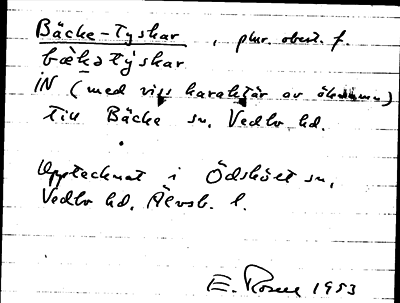 Bäcke-Tyskar , plur. obest. f.
bæ̀kətýskar
IN (med viss karaktär av öknamn)
till Bäcke sn, Vedbo hd.
Upptecknat i Ödskölt sn,
Vedbo hd, Älvsb. l.
E. Rosell 1953